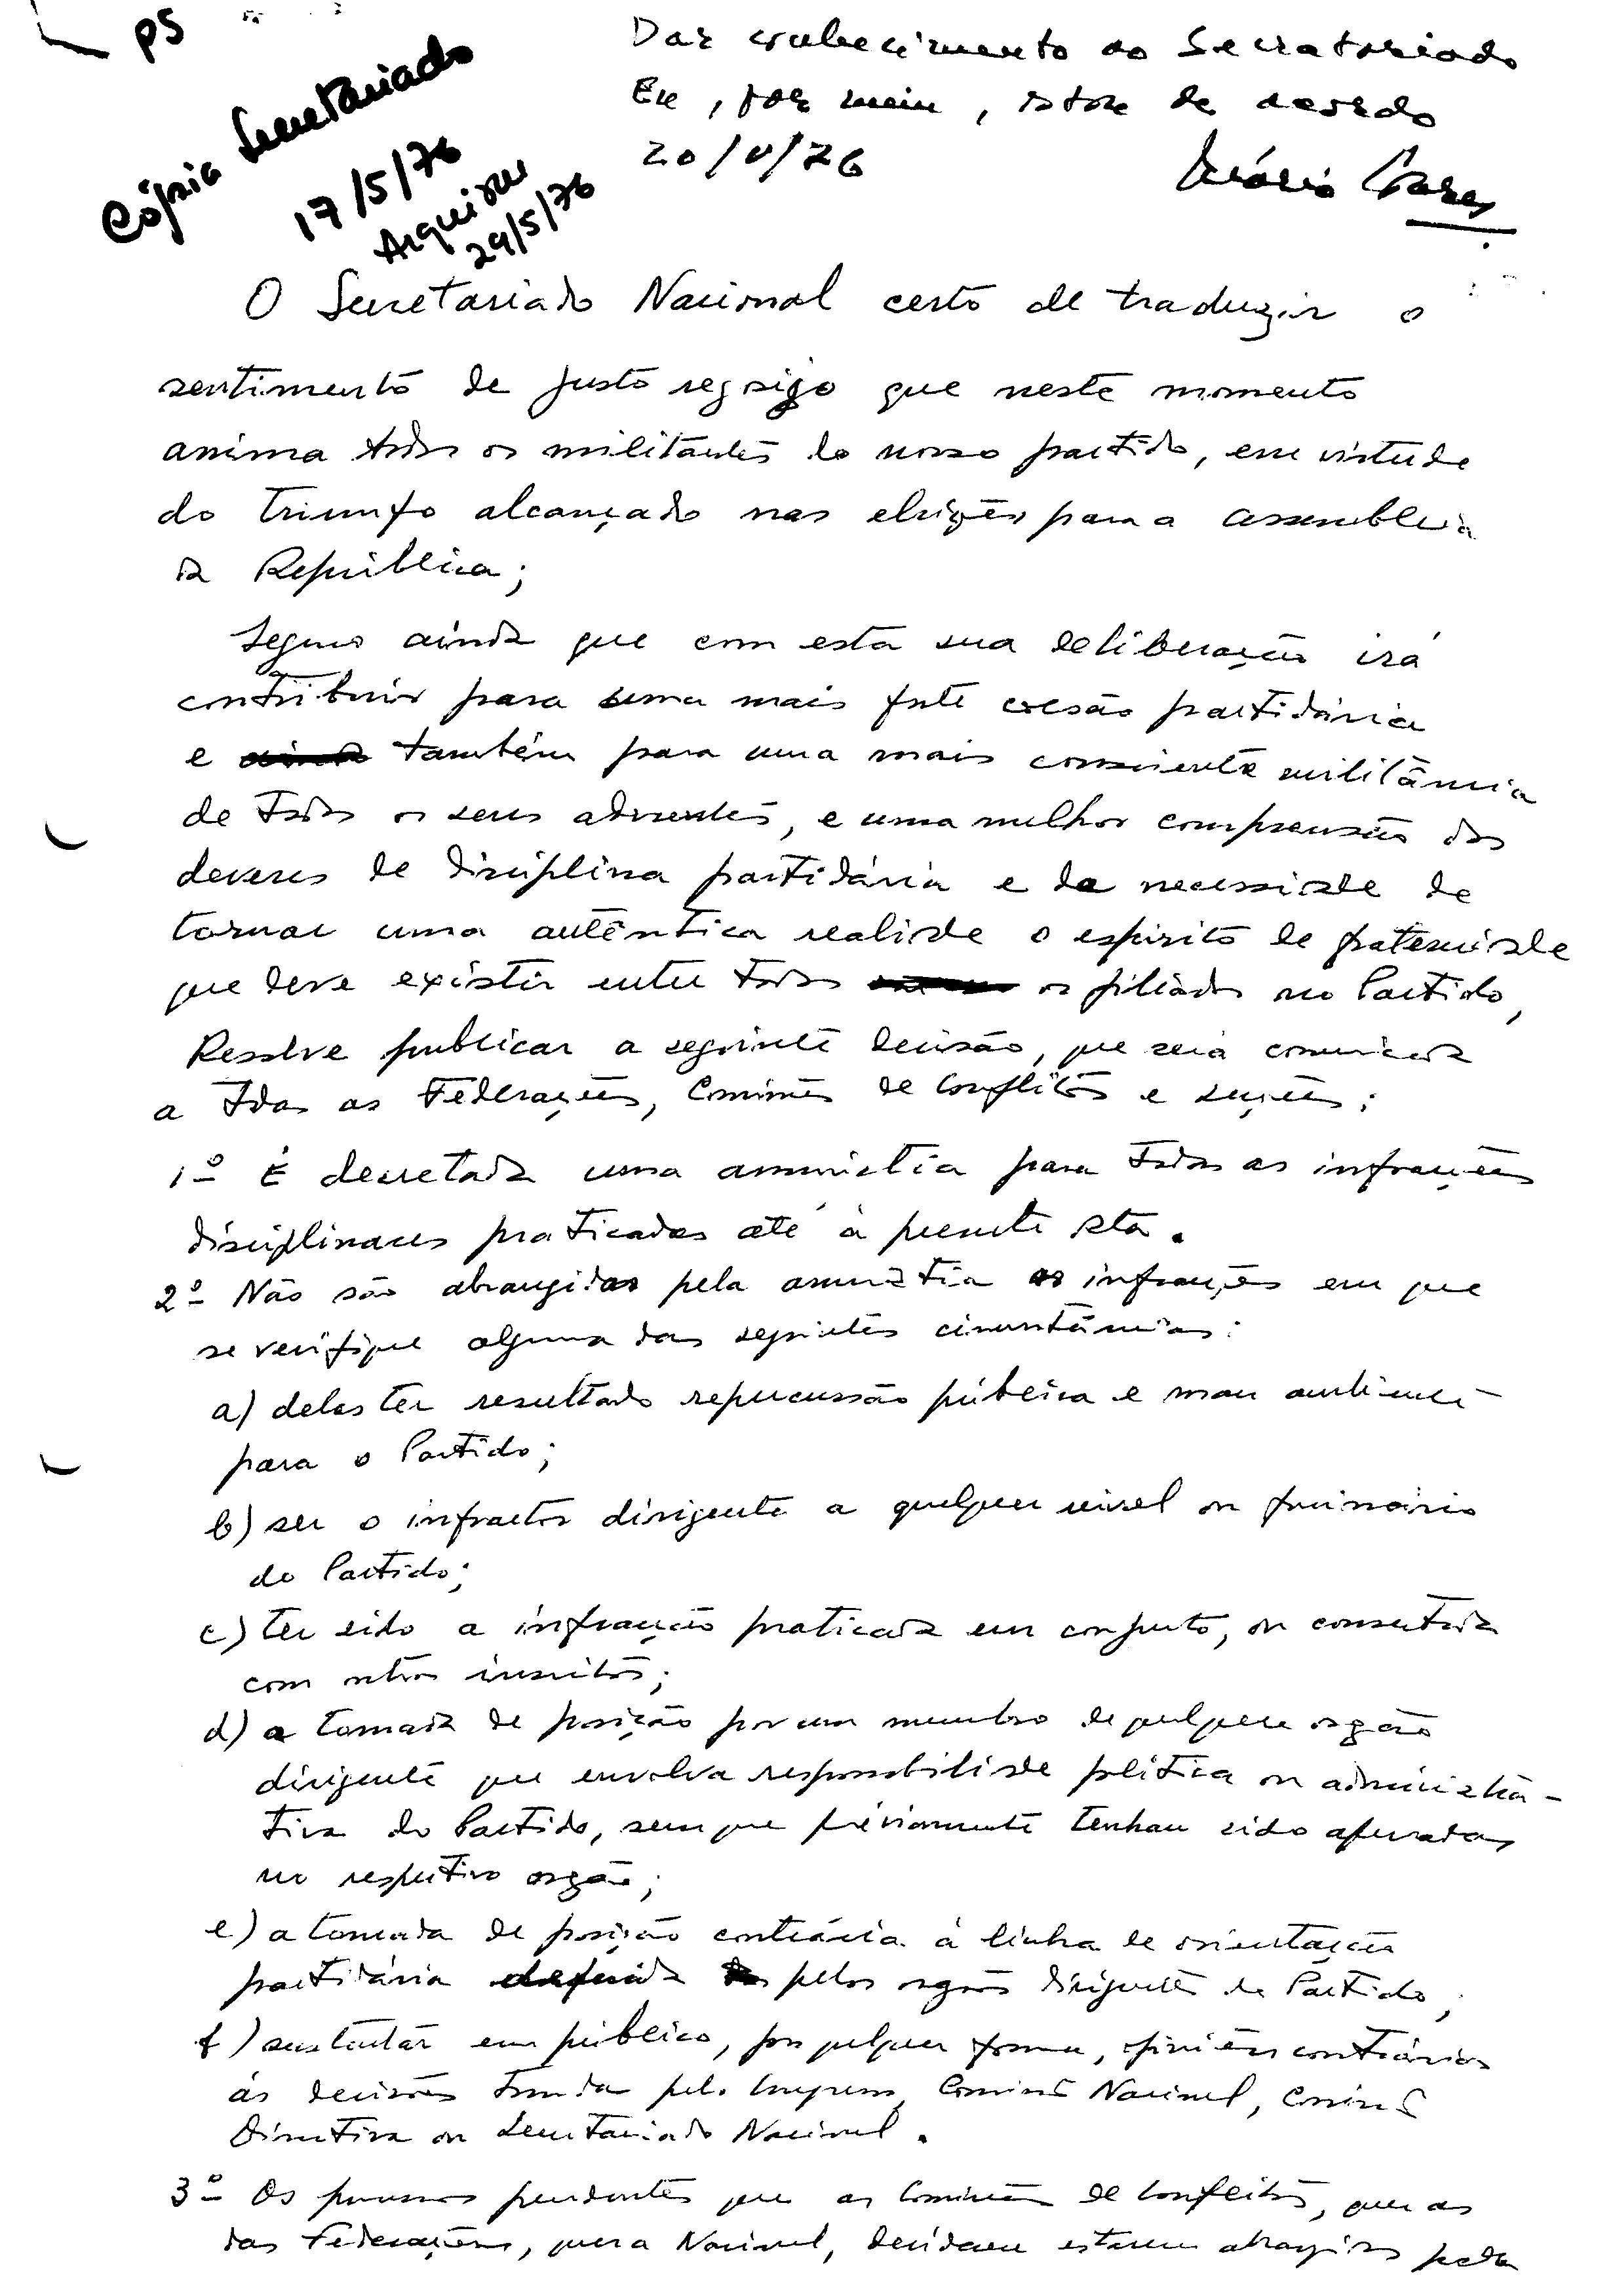 PS
Cópia Secretariado
17/5/76
Arquivar
24/5/76
Dar conhecimento ao Secretariado
Eu, por mim, estou de acordo
20/V/76
Mário Soares
O Secretariado Nacional certo de traduzir o
sentimento de justo regosijo que neste momento
anima todos os militantes do nosso partido, em virtude
do triunfo alcançado nas eleições para a Assembleia
da República;
Seguro ainda que com esta sua deliberação irá
contribuir para uma mais forte coesão partidária
e também para uma mais consciente militância
de todos os seus aderentes, e uma melhor compreensão dos
deveres de disciplina partidária e da necessidade de
tornar uma autêntica realidade o espírito de fraternidade
que deve existir entre todos os filiados no Partido,
Resolve publicar a seguinte decisão, que será comunicada
a todas as Federações, Comissões de Conflitos e secções:
1º É decretada uma amnistia para todas as infracções
disciplinares praticadas até à presente data.
2º Não são abrangidas pela amnistia as infracções em que
se verifique alguma das seguintes circunstâncias:
a) delas ter resultado repercussão pública e mau ambiente
para o Partido;
b) ser o infractor dirigente a qualquer nível ou funcionário
do Partido;
c) ter sido a infracção praticada em conjunto, ou consertada
com outros inscritos;
d) a tomada de posição por um membro de qualquer orgão
dirigente que envolva responsabilidade política ou administra-
tiva do Partido, sem que préviamente tenham sido
no respectivo orgão;
e) a tomada de posição contrária à linha de orientação
partidária definida pelos orgãos dirigentes do Partido;
f) sustentar em público, por qualquer forma, opiniões contrárias
às decisões tomadas pelo Congresso, Comissão Nacional, Comissão
Directiva ou Secretariado Nacional.
3º Os processos pendentes que as Comissões de Conflitos, quer as
das Federações, quer a Nacional, decidam estarem abrangidos pela